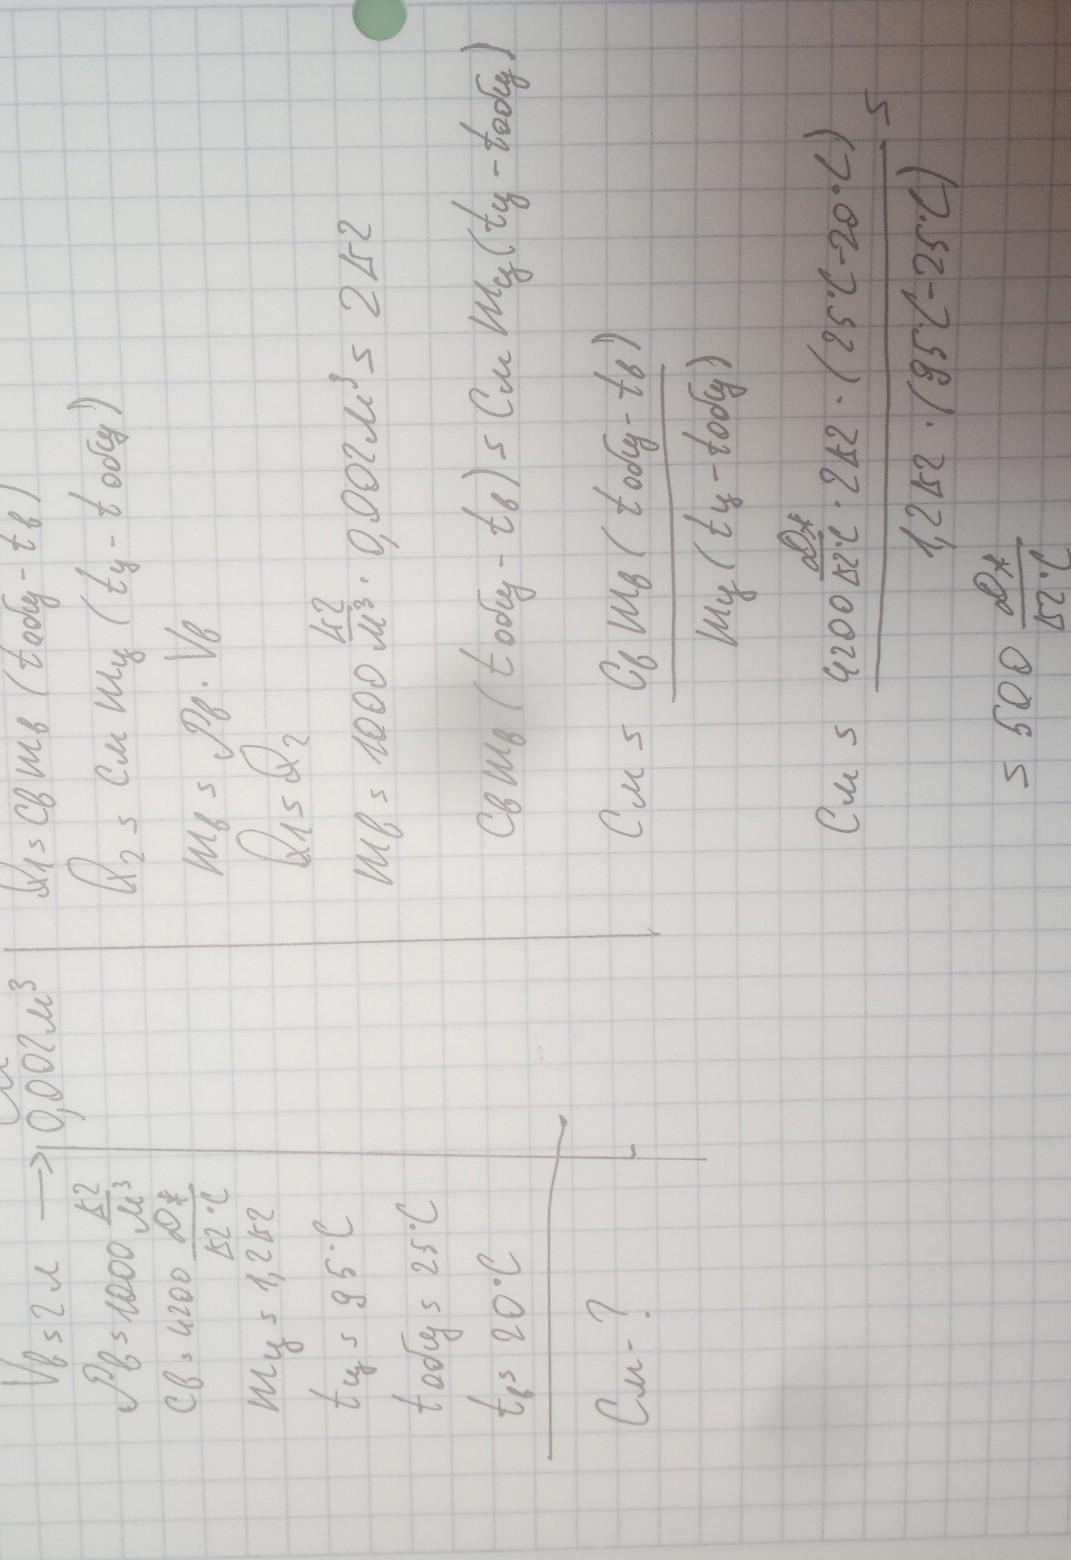 Vв = 2 л → 0,002 м³
ρв = 1000 кг/м³
cв = 4200 Дж/кг°C
mц = 1,2 кг
tц = 95°C
tобщ = 25°C
tв = 20°C
Cм - ?
Q1 = cв mв (tобщ - tв)
Q2 = cм mц (tц - tобщ)
mв = ρв · Vв
Q1 = Q2
mв = 1000 кг/м³ · 0,002 м³ = 2 кг
cв mв (tобщ - tв) = cм mц (tц - tобщ)
cм = cв mв (tобщ - tв) / mц (tц - tобщ)
cм = 4200 Дж/кг°C · 2 кг · (25°C - 20°C) / 1,2 кг · (95°C - 25°C) =
= 500 Дж/кг°C